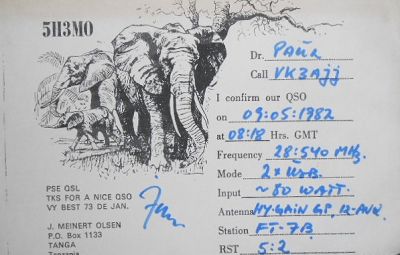 5H3MO
Dr. Paul
Call VK3AJJ
I confirm our QSO
on 09:05:1982
at 08:18 Hrs. GMT
Frequency 28:540 MHz.
Mode 2x USB.
Input ~80 WATT.
Antenna HY-GAIN GP, 12-AVQ.
Station FT-7B
RST 5:2
PSE QSL
TKS FOR A NICE QSO
VY BEST 73 DE JAN.
J. MEINERT OLSEN
P.O. Box 1133
TANGA
Tanzania